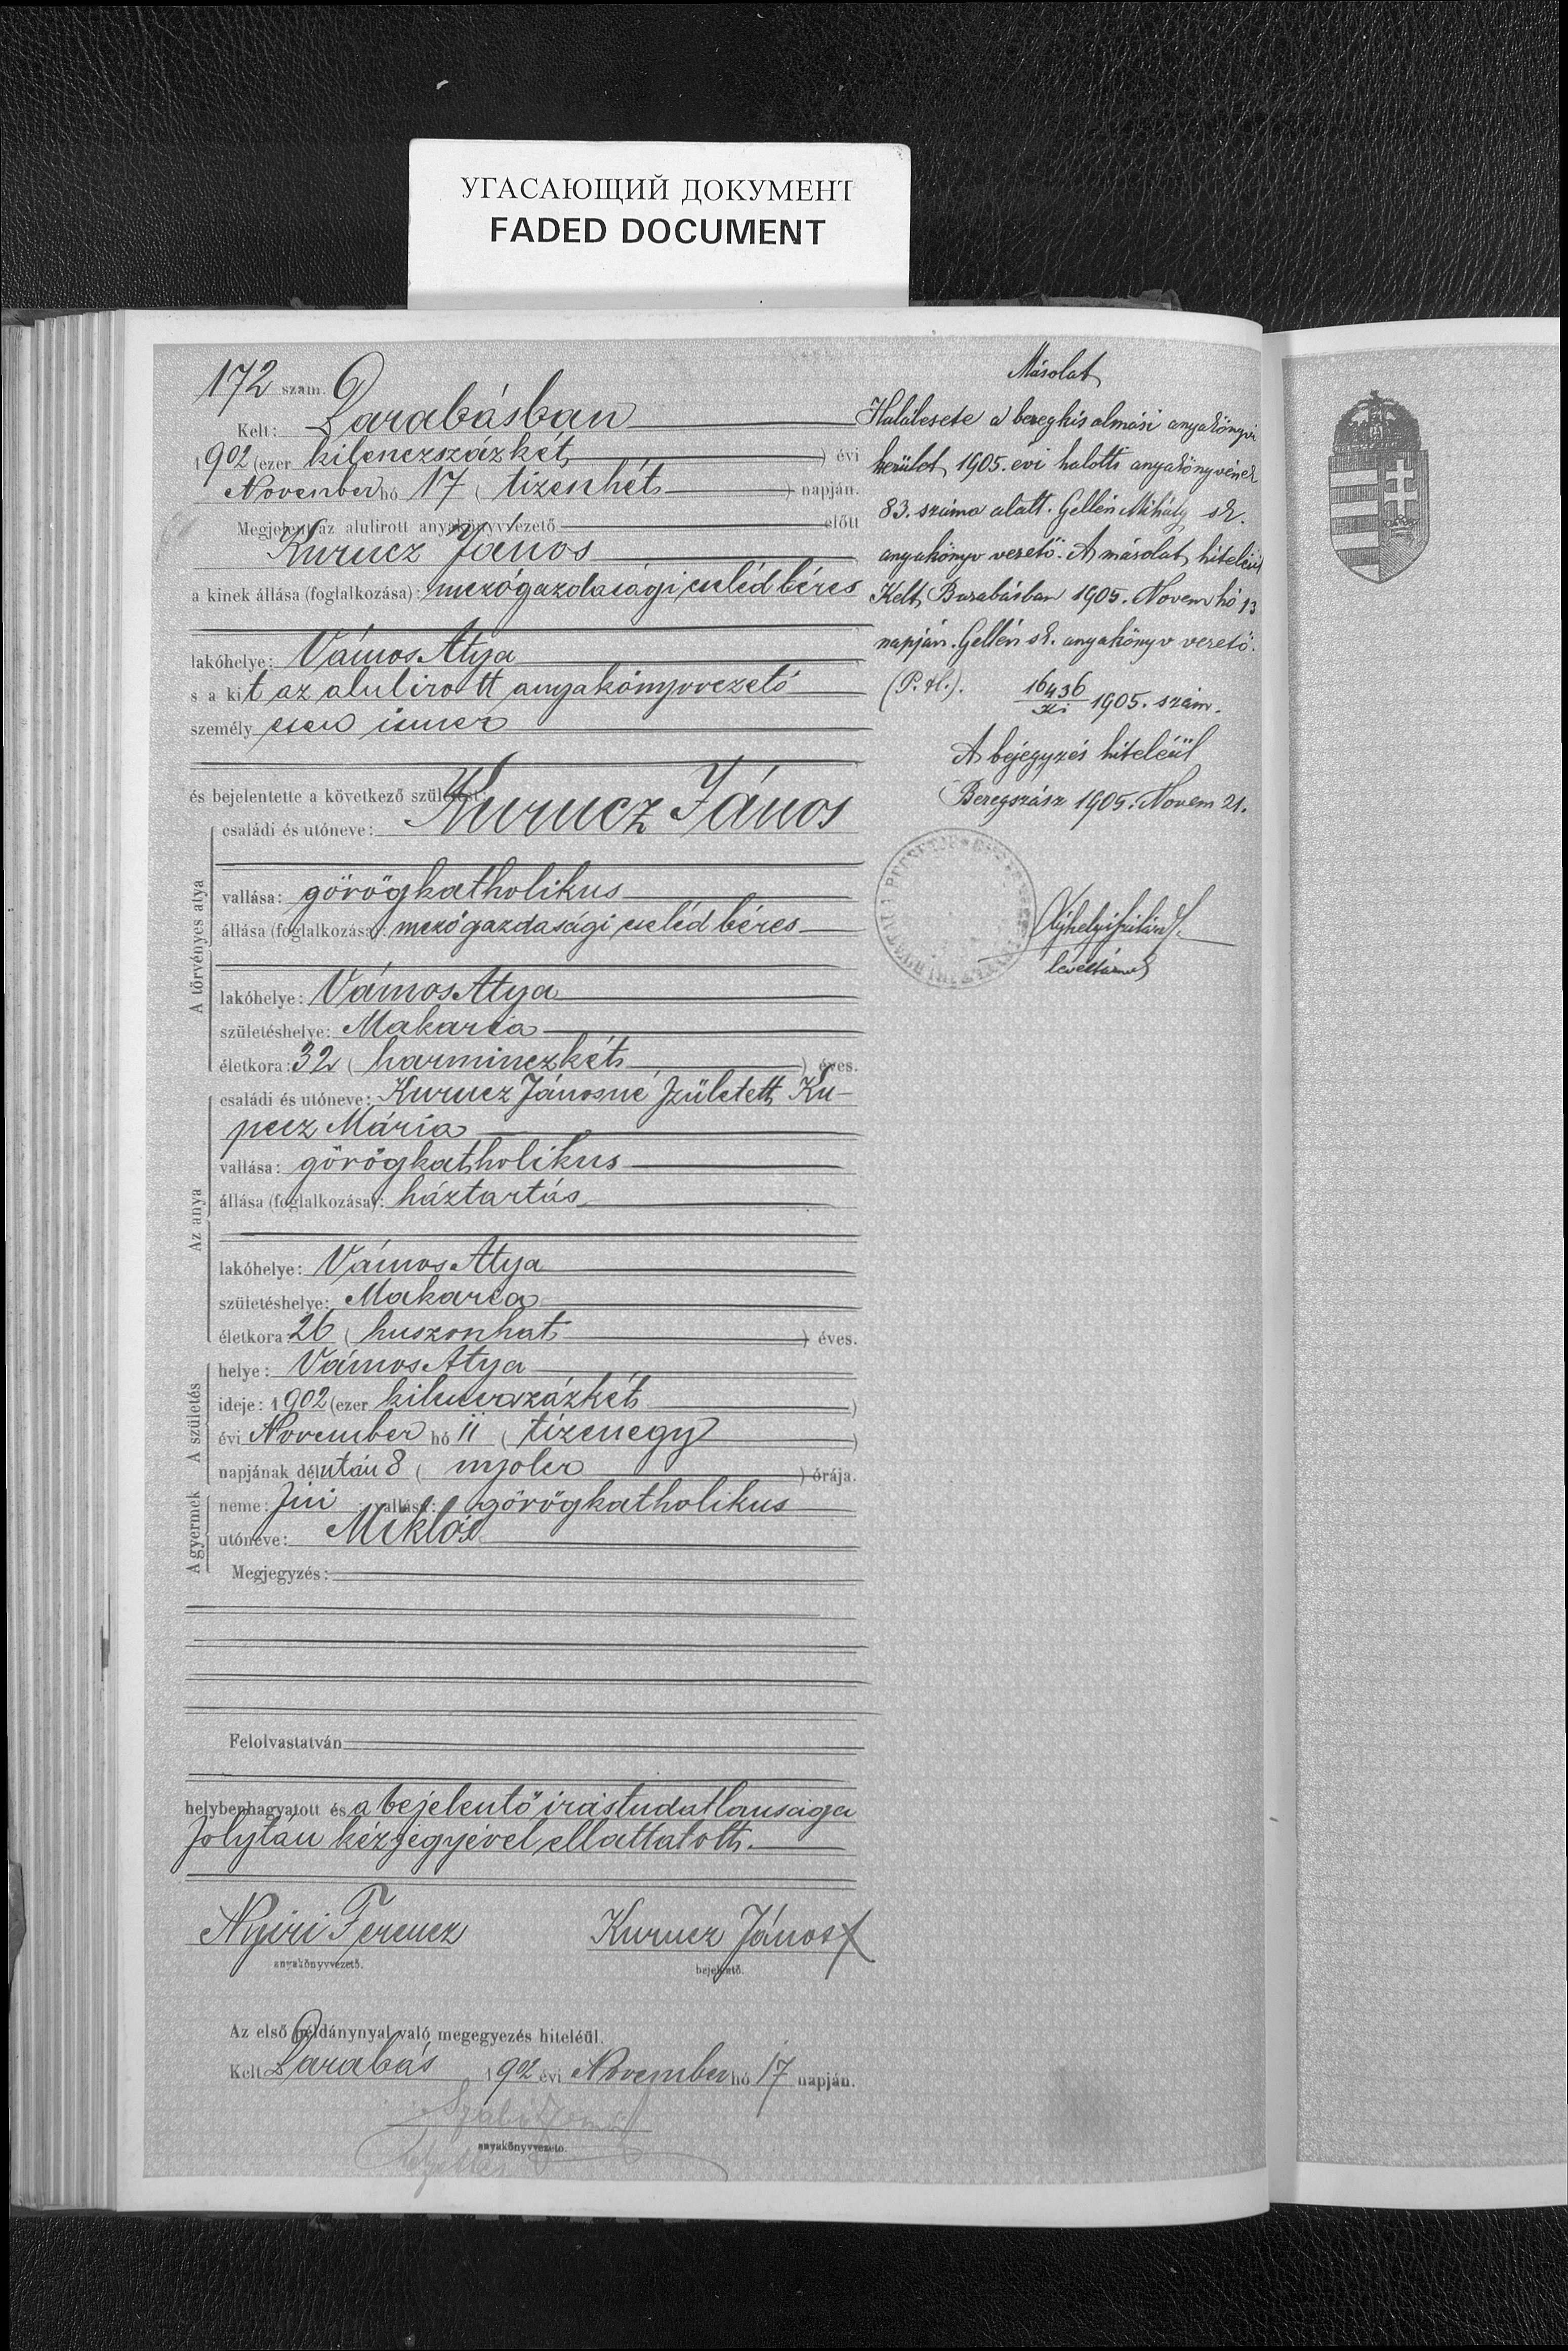 УГАСАЮЩИЙ ДОКУМЕНТ
FADED DOCUMENT
172 szám.
Kelt: Barabásban
1902 (ezer kilenczszázkét) évi
November hó 17 (tizenhét) napján.
Megjelent az alulirott anyakönyvvezető előtt
Kurucz János
a kinek állása (foglalkozása): mezőgazdasági cseléd béres
lakóhelye: Vámos Atya
s a kit az alulirott anyakönyvvezető
személyesen ismer
és bejelentette a következő születést:
A törvényes atya
családi és utóneve: Kurucz János
vallása: görögkatholikus
állása (foglalkozása): mezőgazdasági cseléd béres
lakóhelye: Vámos Atya
születéshelye: Makaria
életkora: 32 (harminczkét) éves.
Az anya
családi és utóneve: Kurucz Jánosné született Ku-
pecz Mária
vallása: görögkatholikus
állása (foglalkozása): háztartás
lakóhelye: Vámos Atya
születéshelye: Makaria
életkora: 26 (huszonhat) éves.
A születés
helye: Vámos Atya
ideje: 1902 (ezer kilenczszázkét)
évi November hó 11 (tizenegy)
napjának délután 8 (nyolcz) órája.
A gyermek
neme: fiú vallása: görögkatholikus
utóneve: Miklós
Megjegyzés:
Felolvastatván
helybenhagyatott és a bejelentő irástudatlansága
folytán kézjegyével ellattatott.
Nyiri Ferencz
anyakönyvvezető.
Kurucz János X
bejelentő.
Az első példánynyal való megegyezés hiteléül.
Kelt Barabás 1902 évi November hó 17 napján.
anyakönyvvezető.
helyettes
Másolat
Halálesete a beregkisalmási anyakönyvi
kerület 1905. évi halotti anyakönyvének
83. száma alatt. Gellén Mihály sk.
anyakönyv vezető. A másolat hiteléül
Kelt, Barabásban 1905. Novem hó 13
napján. Gellén sk. anyakönyv vezető.
(P. H.). 16436/Ki 1905. szám.
A bejegyzés hiteléül
Beregszász 1905. Novem 21.
levéltárnok